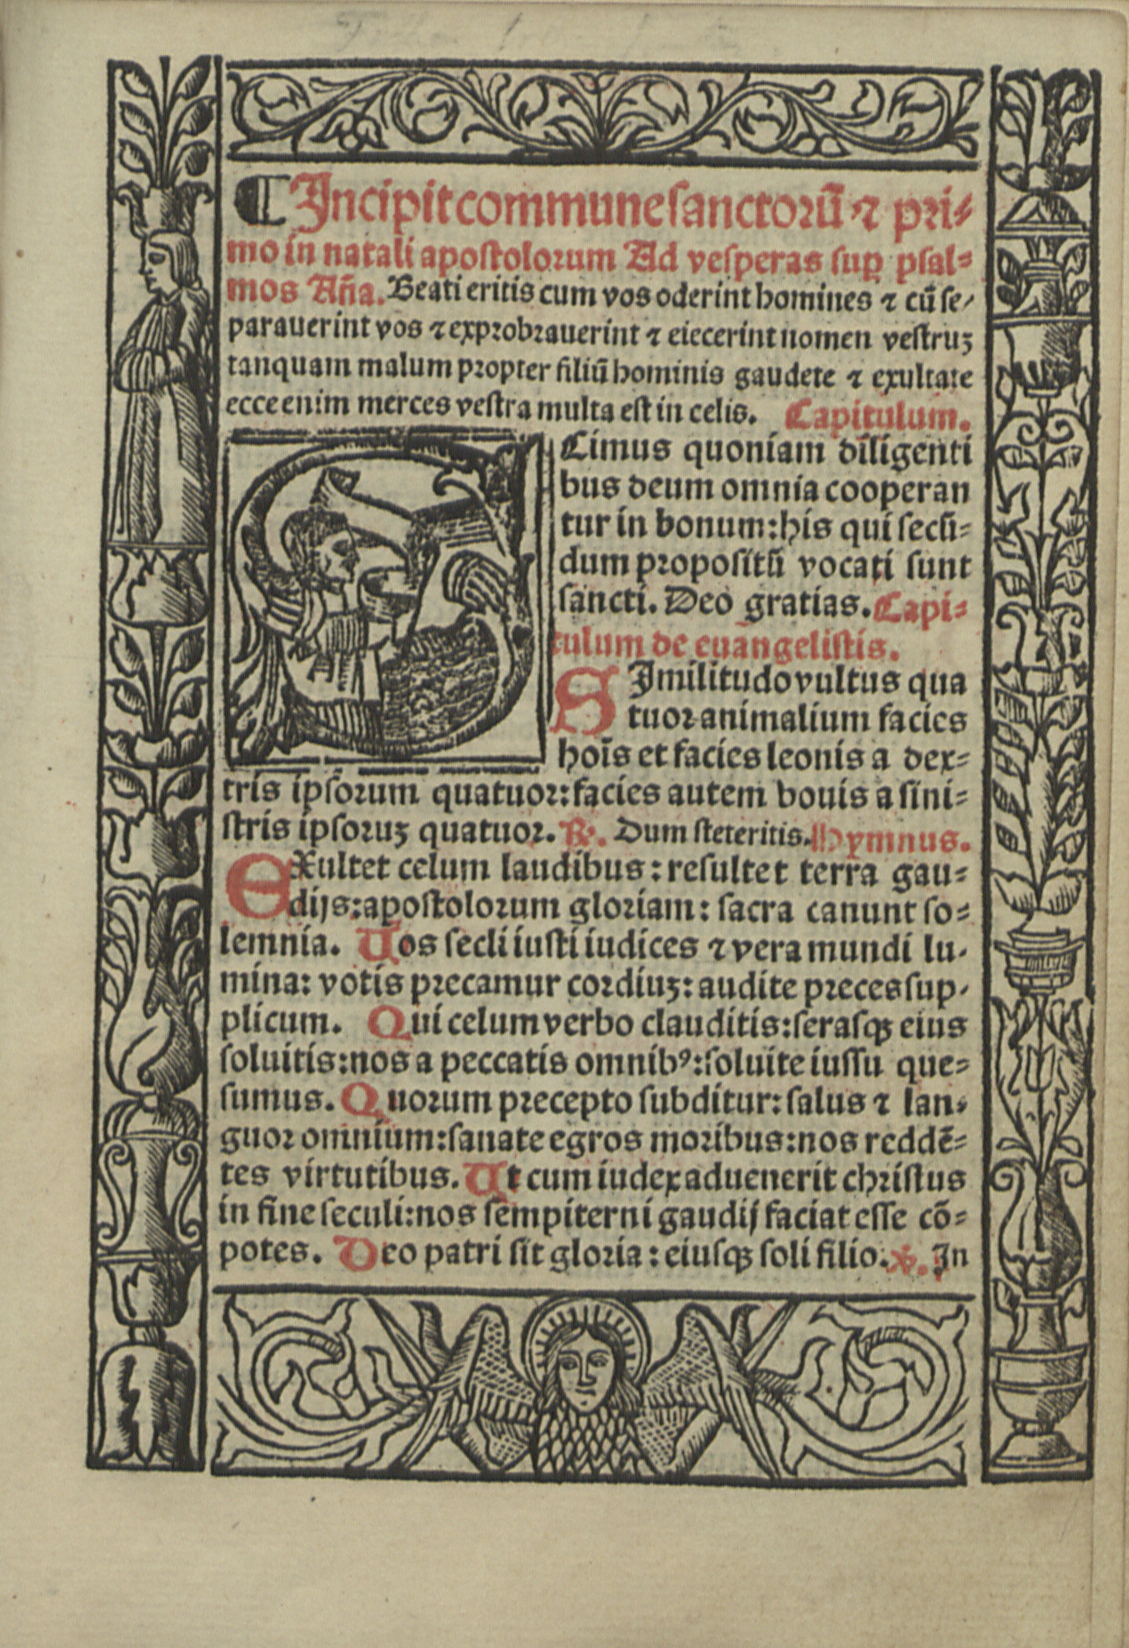 ¶ Incipit commune sanctorū ⁊ pri-
mo in natali apostolorum Ad vesperas sup̱ psal-
mos Aña. Beati eritis cum vos oderint homines ⁊ cū se-
parauerint vos ⁊ exprobrauerint ⁊ eiecerint nomen vestruꝫ
tanquam malum propter filiū hominis gaudete ⁊ exultate
ecce enim merces vestra multa est in celis. Capitulum.
SCimus quoniam diligenti
bus deum omnia cooperan
tur in bonum: his qui secū-
dum propositū vocati sunt
sancti. Deo gratias. Capi-
tulum de euangelistis.
SImilitudo vultus qua
tuor animalium facies
hoīs et facies leonis a dex-
tris ipsorum quatuor: facies autem bouis a sini-
stris ipsoruꝫ quatuor. ℟. Dum steteritis. Hymnus.
EXultet celum laudibus: resultet terra gau-
dijs: apostolorum gloriam: sacra canunt so-
lemnia. Uos secli iusti iudices ⁊ vera mundi lu-
mina: votis precamur cordiuꝫ: audite preces sup-
plicum. Qui celum verbo clauditis: serasqꝫ eius
soluitis: nos a peccatis omnibꝰ: soluite iussu que-
sumus. Quorum precepto subditur: salus ⁊ lan-
guor omnium: sanate egros moribus: nos reddē-
tes virtutibus. Ut cum iudex aduenerit christus
in fine seculi: nos sempiterni gaudij faciat esse cō-
potes. Deo patri sit gloria: eiusqꝫ soli filio. ℣. In